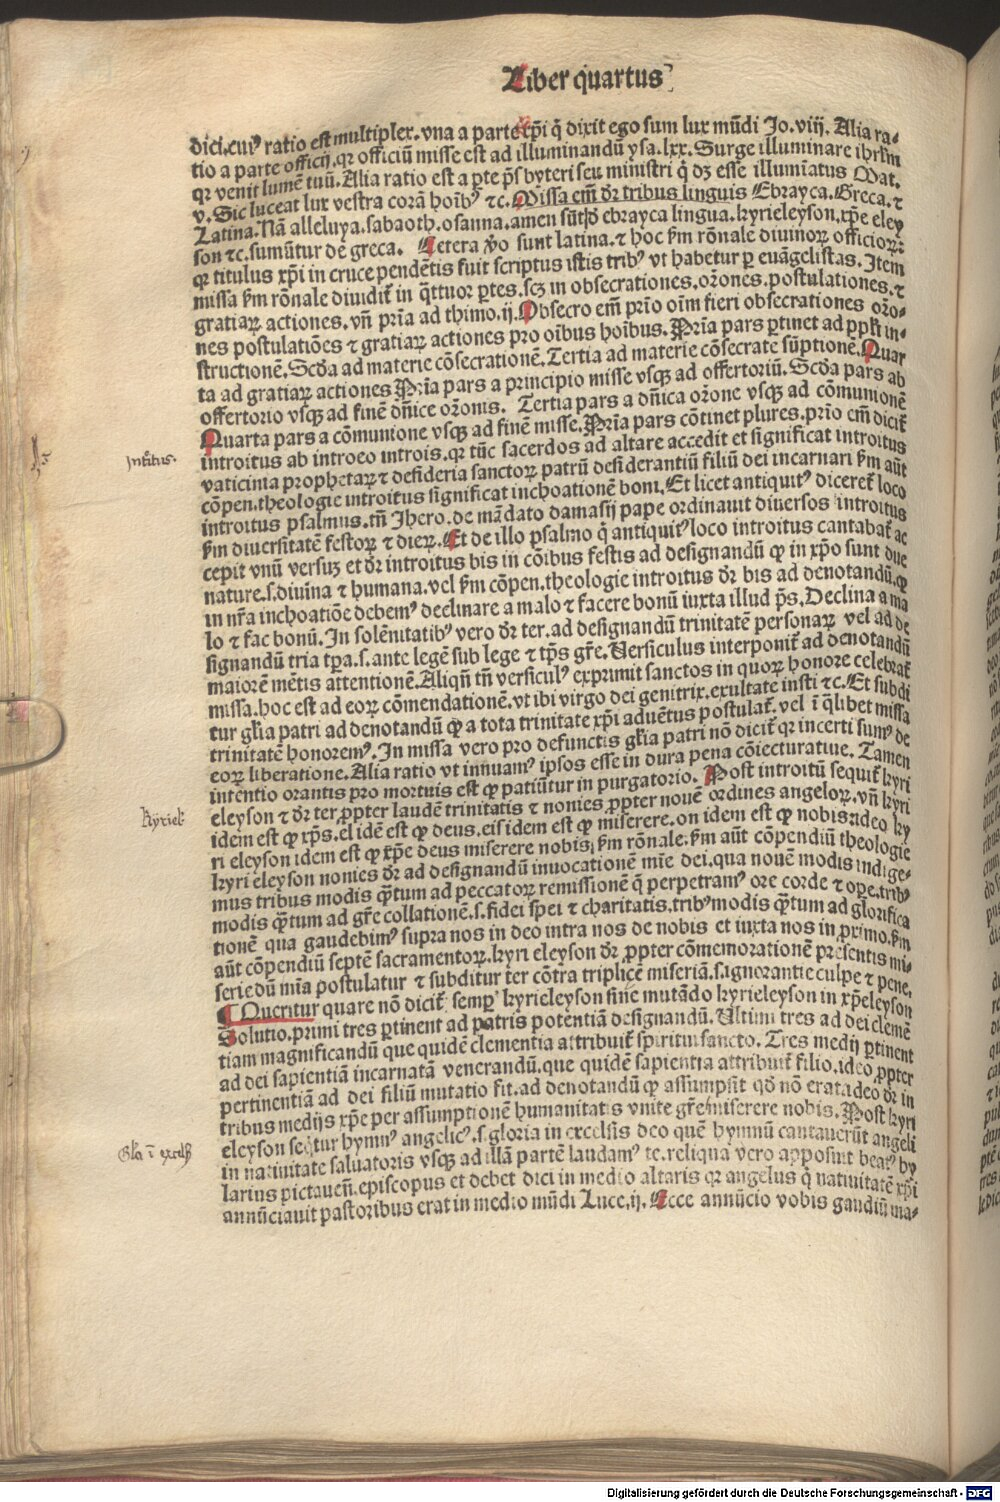 Liber quartus
dici.cui⁹ ratio est multiplex.vna a parte xp̄i q̄ dixit ego sum lux mūdi Jo.viij. Alia ra-
tio a parte officij.qꝛ officiū misse est ad illuminandū ysa.lxx.Surge illuminare ihrl̄m
qꝛ venit lumē tuū.Alia ratio est a ꝑte p̄sbyteri seu ministri q̄ dꝫ esse illumīatus Mat.
v.Sic luceat lux vestra corā hoīb⁹ ⁊c.Missa em̄ dr̄ tribus linguis Ebrayca.Greca.⁊
Latina.Nā alleluya.sabaoth.osanna.amen sūt ebrayca lingua.kyrieleyson.xp̄e eley
son ⁊c.sumūtur de greca. Cetera v̄o sunt latina.⁊ hoc ẜm rōnale diuinoꝝ officioꝝ:
qꝛ titulus xp̄i in cruce pendētis fuit scriptus istis trib⁹ vt habetur ꝑ euāgelistas.Item
missa ẜm rōnale diuidit᷑ in q̄ttuor ꝑtes.scꝫ in obsecrationes.orōnes.postulationes.⁊
gratiaꝝ actiones.vn̄ prīa ad thimo.ij.Obsecro em̄ prīo oīm fieri obsecrationes orō-
nes postulatiōes ⁊ gratiaꝝ actiones pro oībus hoībus.Prīa pars ꝑtinet ad ppl̄i in-
structionē.Scd̄a ad materie cōsecrationē.Tertia ad materie cōsecrate sūptionē.Quar
ta ad gratiaꝝ actiones Prīa pars a principio misse vsqꝫ ad offertoriū.Scd̄a pars ab
offertorio vsqꝫ ad finē dn̄ice orōnis. Tertia pars a dn̄ica orōne vsqꝫ ad cōmunionē
Quarta pars a cōmunione vsqꝫ ad finē misse.Prīa pars cōtinet plures.prīo em̄ dicit᷑
introitus ab introeo introis.qꝛ tūc sacerdos ad altare accedit et significat introitus
Introitus.
vaticinia prophetaꝝ ⁊ desideria sanctoꝝ patrū desiderantiū filiū dei incarnari ẜm aūt
cōpen.theologie introitus significat inchoationē boni.Et licet antiquit⁹ diceret᷑ loco
introitus psalmus.tn̄ Jhero.de mādato damasij pape ordinauit diuersos introitus
ẜm diuersitatē festoꝝ ⁊ dieꝝ.Et de illo psalmo q̄ antiquit⁹ loco introitus cantabat᷑ ac
cepit vnū versuꝫ et dr̄ introitus bis in cōibus festis ad designandū ꝙ in xp̄o sunt due
nature.s.diuina ⁊ humana.vel ẜm cōpen.theologie introitus dr̄ bis ad denotandū.ꝙ
in nr̄a inchoatiōe debem⁹ declinare a malo ⁊ facere bonū iuxta illud p̄s.Declina a ma
lo ⁊ fac bonū.In solēnitatib⁹ vero dr̄ ter.ad designandū trinitatē personaꝝ vel ad de
signandū tria tp̄a.s.ante legē sub lege ⁊ tp̄s gr̄e.Versiculus interponit᷑ ad denotandū
maiorē mētis attentionē.Aliqn̄ tn̄ versicul⁹ exprimit sanctos in quoꝝ honore celebrat᷑
missa.hoc est ad eoꝝ cōmendationē.vt ibi virgo dei genitrix.exultate iusti ⁊c.Et subdi
tur gl̄ia patri ad denotandū ꝙ a tota trinitate xp̄i aduētus postulat᷑.vel ī q̄libet missa
trinitatē honorem⁹.In missa vero pro defunctis gl̄ia patri nō dicit᷑ qꝛ incerti sum⁹ de
eoꝝ liberatione.Alia ratio vt innuam⁹ ipsos esse in dura pena cōiecturatiue. Tamen
intentio orantis pro mortuis est ꝙ patiūtur in purgatorio. Post introitū sequit᷑ kyri
eleyson ⁊ dr̄ ter ꝓpter laudē trinitatis ⁊ nonies ꝓpter nouē ordines angeloꝝ.vn̄ kyri
Kyriel
idem est ꝙ xp̄s.el idē est ꝙ deus.eis idem est ꝙ miserere.on idem est ꝙ nobis.ideo ky
ri eleyson idem est ꝙ xp̄e deus miserere nobis.ẜm rōnale.ẜm aūt cōpendiū theologie
kyri eleyson nonies dr̄ ad designandū inuocationē mīe dei.qua nouē modis indige-
mus tribus modis q̄tum ad peccatoꝝ remissionē q̄ perpetram⁹ ore corde ⁊ oꝑe.trib⁹
modis q̄tum ad gr̄e collationē.s.fidei spei ⁊ charitatis.trib⁹ modis q̄tum ad glorifica
tionē qua gaudebim⁹ supra nos in deo intra nos de nobis et iuxta nos in ꝓximo.ẜm
aūt cōpendiū septē sacramentoꝝ.kyri eleyson dr̄ ꝓpter cōmemorationē presentis mi-
serie dū mīa postulatur ⁊ subditur ter cōtra triplicē miseriā.s.ignorantie culpe ⁊ pene.
¶ Queritur quare nō dicit᷑ semꝑ kyrieleyson sine mutādo kyrieleyson in xp̄eleyson
Solutio.primi tres ꝑtinent ad patris potentiā designandū.Ultimi tres ad dei clemē
tiam magnificandū que quidē clementia attribuit᷑ spiritui sancto. Tres medij ꝑtinent
ad dei sapientiā incarnatā venerandū.que quidē sapientia attribuit᷑ filio.ideo ꝓpter
pertinentiā ad dei filiū mutatio fit.ad denotandū ꝙ assumpsit qd̄ nō erat.ideo dr̄ in
tribus medijs xp̄e per assumptionē humanitatis vnite gr̄e miserere nobis.Post kyri
eleyson seq̄tur hymn⁹ angelic⁹.s.gloria in excelsis deo quē hymnū cantauerūt angeli
Gl̄a ī excelß
in natiuitate saluatoris vsqꝫ ad illā partē laudam⁹ te.reliqua vero apposuit beat⁹ hy
larius pictauen̄.episcopus et debet dici in medio altaris qꝛ angelus q̄ natiuitatē xp̄i
annūciauit pastoribus erat in medio mūdi Luce.ij. Ecce annūcio vobis gaudiū ma-
Digitalisierung gefördert durch die Deutsche Forschungsgemeinschaft - DFG